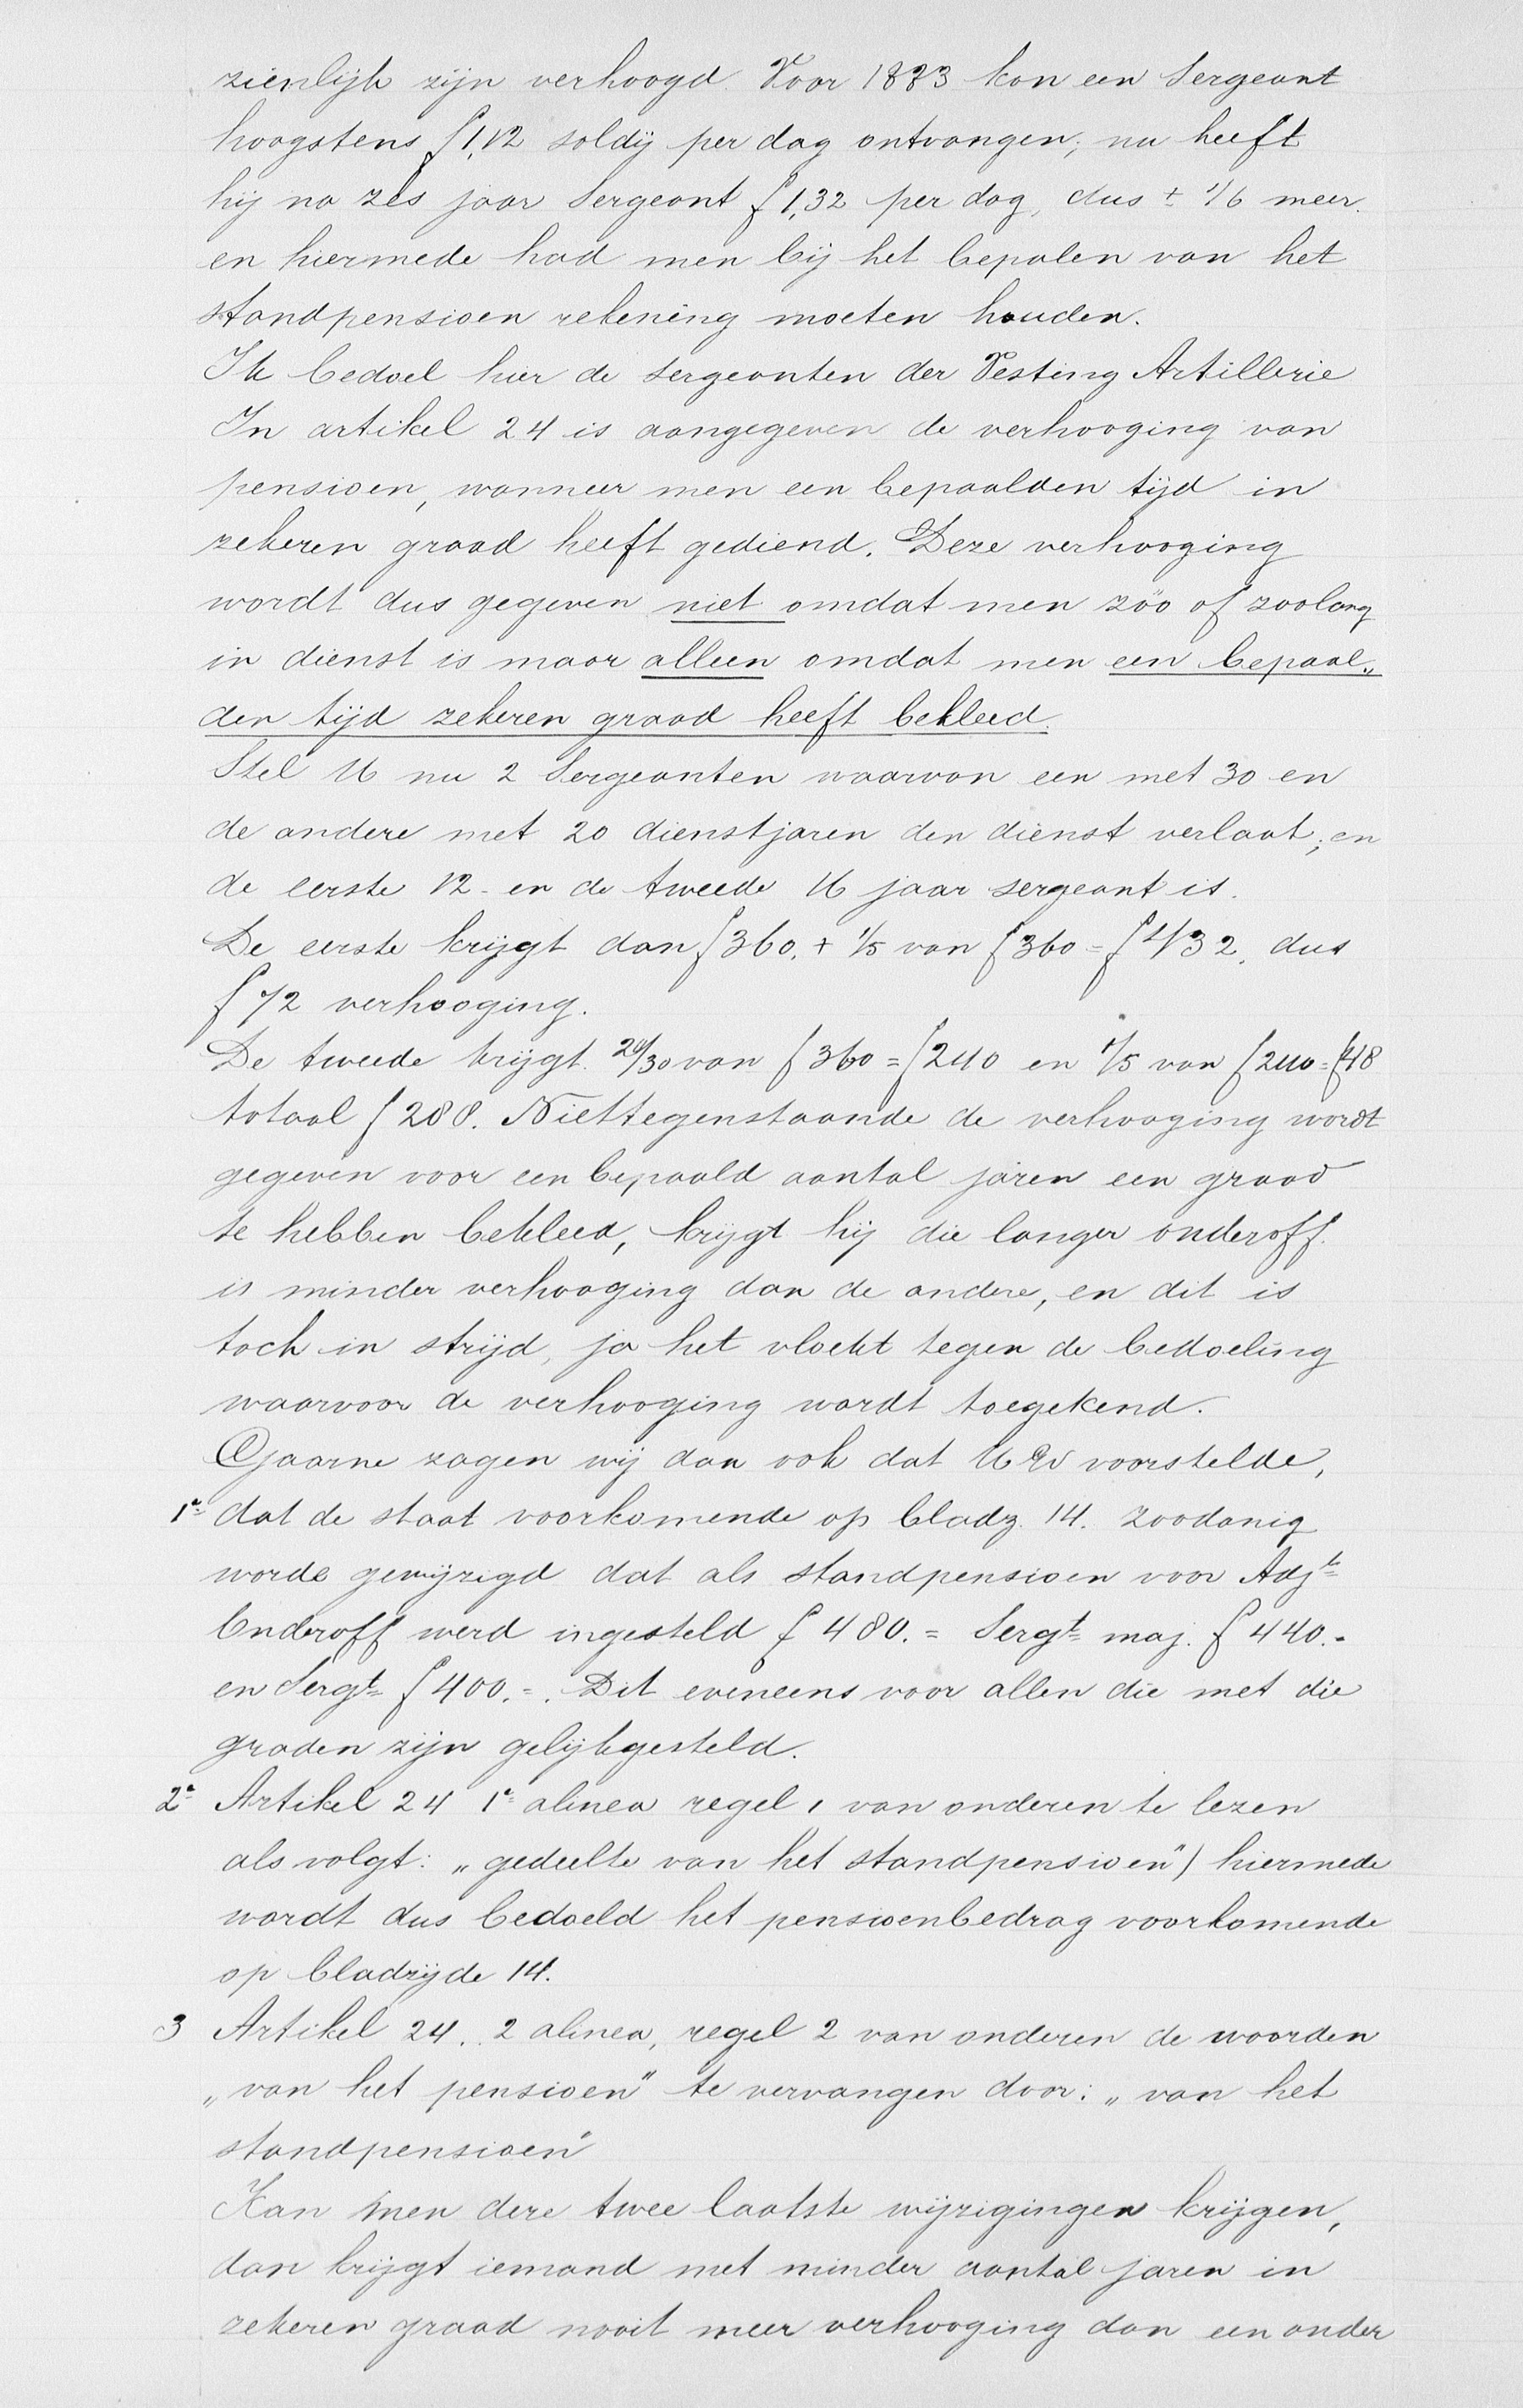 zienlijk zijn verhoogd. Voor 1883 kon een Sergeant
hoogstens f 1,12 soldij per dag ontvangen; nu heeft
hij na zes jaar Sergeant f 1,32 per dag, dus ± 1/6 meer.
en hiermede had men bij het bepalen van het
standpensioen rekening moeten houden.
Ik bedoel hier de sergeanten der Vesting Artillerie
In artikel 24 is aangegeven de verhooging van
pensioen, wanneer men een bepaalden tijd in
zekeren graad heeft gediend. Deze verhooging
wordt dus gegeven niet omdat men zóo of zoolang
in dienst is maar alleen omdat men een bepaal„
den tijd zekeren graad heeft bekleed.
Stel U nu 2 Sergeanten waarvan een met 30 en
de andere met 20 dienstjaren den dienst verlaat; en
de eerste 12 en de tweede 16 jaar sergeant is.
De eerste krijgt dan f 360. + 1/5 van f 360 = f 432. dus
f 72 verhooging.
De tweede krijgt. 20/30 van f 360 = f 240 en 1/5 van f 240 = f 48
totaal f 288. Niettegenstaande de verhooging wordt
gegeven voor een bepaald aantal jaren een graad
te hebben bekleed, krijgt hij die langer onderoff.
is minder verhooging dan de andere, en dit is
toch in strijd, ja het vloekt tegen de bedoeling
waarvoor de verhooging wordt toegekend.
Gaarne zagen wij dan ook dat U Ed voorstelde,
1e dat de staat voorkomende op bladz. 14. zoodanig
worde gewijzigd dat als standpensioen voor Adjt
Onderoff werd ingesteld f 480.= Sergt maj. f 440.=
en Sergt f 400.=. Dit eveneens voor allen die met die
graden zijn gelijkgesteld.
2e Artikel 24 1e alinea regel 1 van onderen te lezen
als volgt: „gedeelte van het standpensioen") hiermede
wordt dus bedoeld het pensioenbedrag voorkomende
op bladzijde 14.
3 Artikel 24. 2 alinea, regel 2 van onderen de woorden
„van het pensioen" te vervangen door: „van het
standpensioen"
Kan men deze twee laatste wijzigingen krijgen,
dan krijgt iemand met minder aantal jaren in
zekeren graad nooit meer verhooging dan een ander